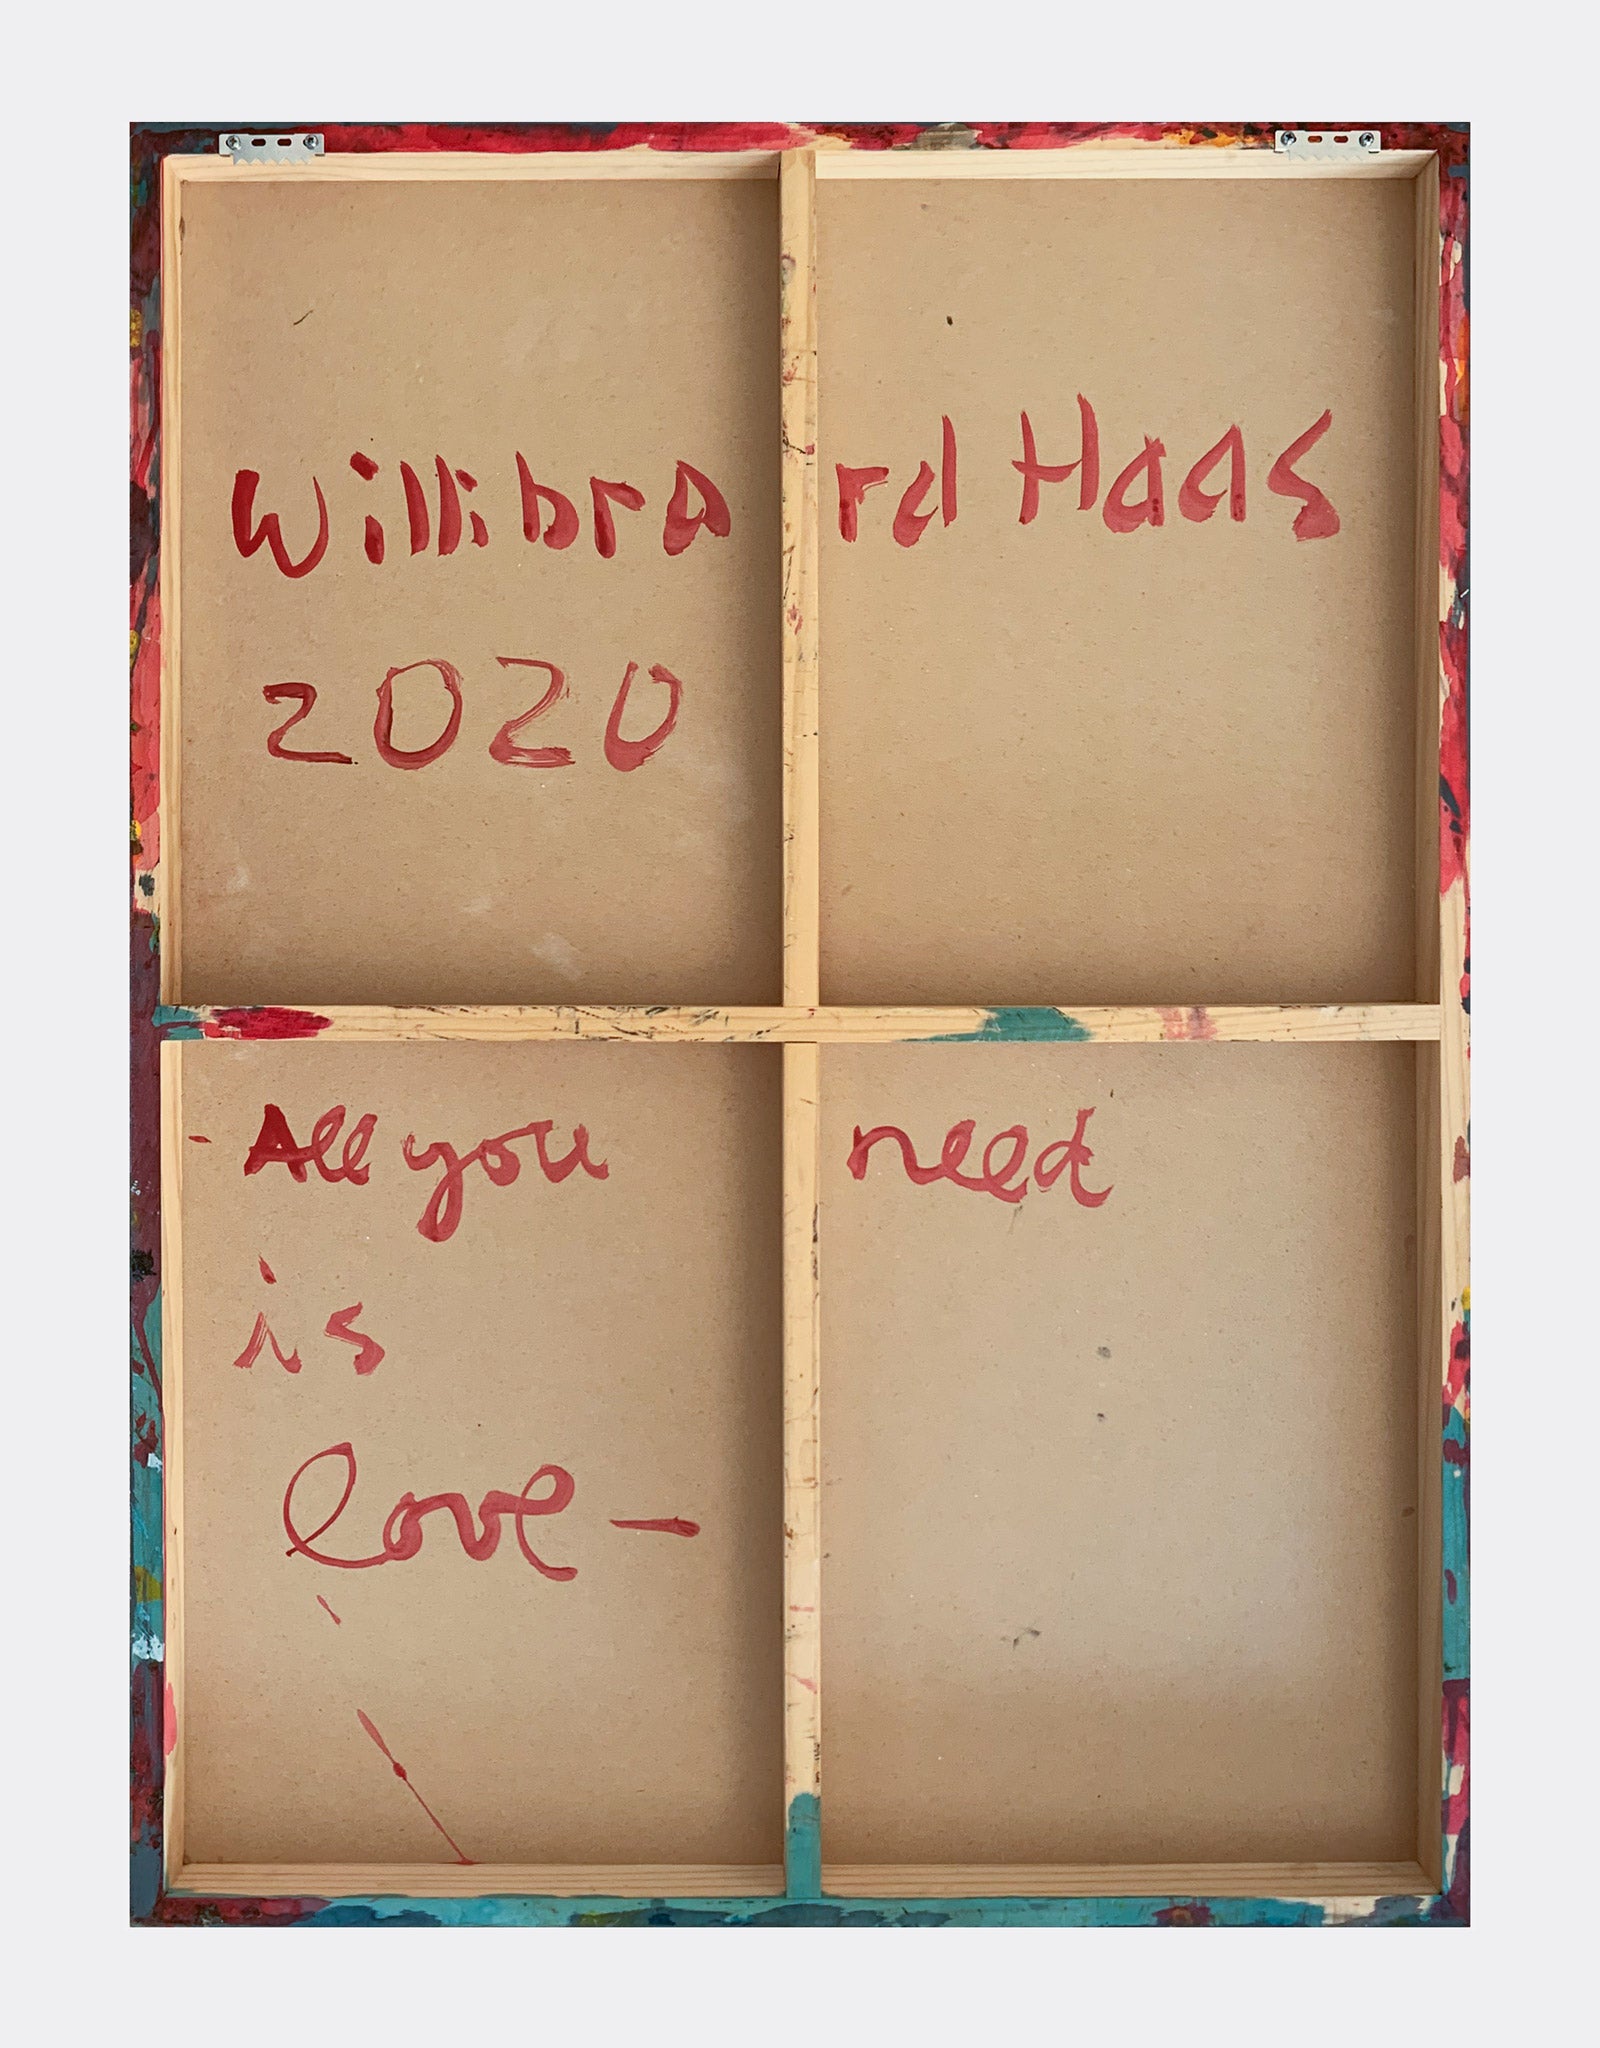 Willibrard Haas
2020
All you need
is
love-